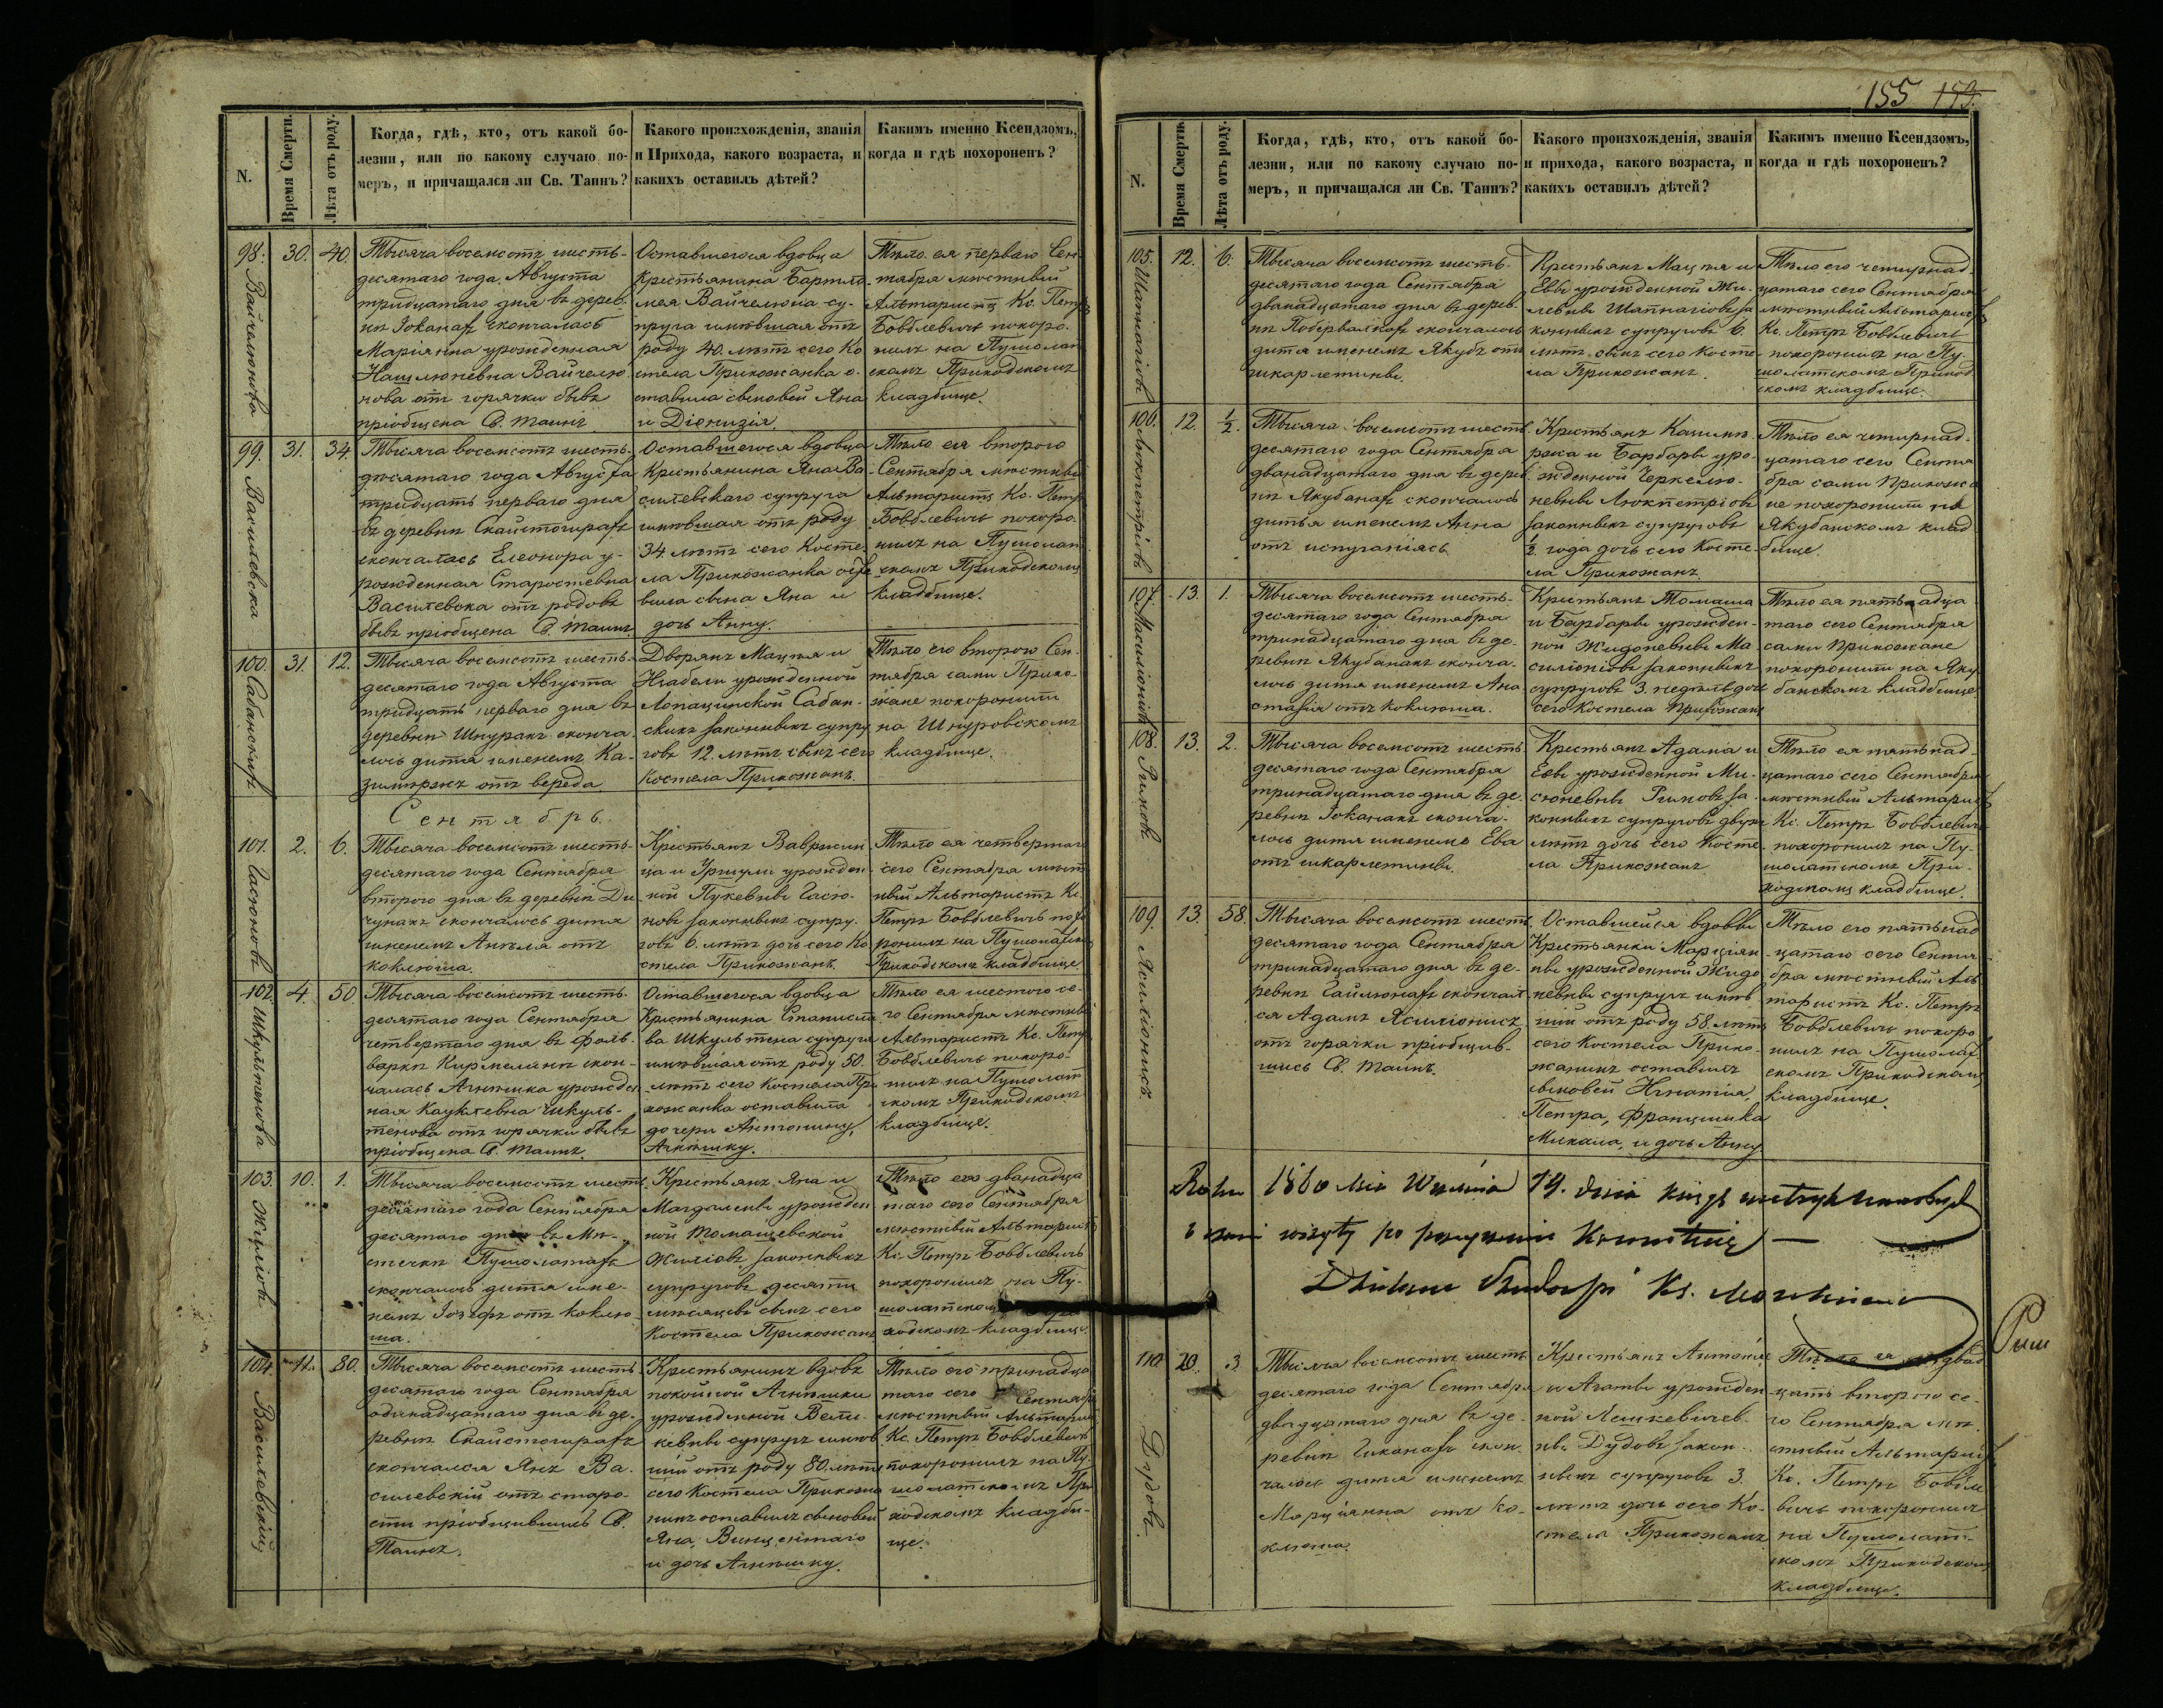 155 153.
N.
Время Смерти.
Лѣта отъ роду.
Когда, гдѣ, кто, отъ какой бо-
лезни, или по какому случаю по-
меръ, и причащался ли Св. Таинъ?
Какого произхожденія, званія
и Прихода, какого возраста, и
какихъ оставилъ дѣтей?
Какимъ именно Ксендзомъ,
когда и гдѣ похороненъ?
98. 30. 40.
Тысяча восемсотъ шесть-
десятаго года Августа
тридцатаго дня въ дерев-
нѣ Іоканахъ скончалась
Маріянна урожденная
Нацлюневна Вайчелю-
нова отъ горячки бывъ
пріобщена Св. таинъ
Оставшегося вдовца
Крестьянина Бартло-
мея Вайчелюна су-
пруга имѣвшая отъ
роду 40. лѣтъ сего Ко
стела Прихожанка о-
ставила сыновей Яна
и Діонизія.
Тѣло ея перваго Сен-
тября мѣстный
Альтаристъ Кс. Петръ
Бовблевичъ похоро-
нилъ на Пушолат
скомъ Приходскомъ
кладбище.
99. 31. 34.
Василевска
Тысяча восемсотъ шесть-
десятаго года Августа
тридцать перваго дня
въ деревни Скайстогирахъ
скончалась Елеонора у-
рожденная Старостевна
Василевска отъ родовъ
бывъ пріобщена Св. таинъ.
Оставшегося вдовца
Крестьянина Яна Ва-
силевскаго супруга
имѣвшая отъ роду
34 лѣтъ сего Косте-
ла Прихожанка оста
вила сына Яна и
дочь Анну.
Тѣло ея второго
Сентября мѣстный
Альтаристъ Кс. Петръ
Бовблевичъ похоро-
нилъ на Пушолат
скомъ Приходскомъ
кладбище.
100. 31. 12.
Тысяча восемсотъ шесть-
десятаго года Августа
тридцать перваго дня въ
деревни Шнурахъ сконча-
лось дитя именемъ Ка-
зимержъ отъ вереда
Дворянъ Мацѣя и
Изабели урожденной
Лопацинской Сабан-
скихъ законныхъ супру
говъ 12. лѣтъ сынъ сего
Костела Прихожанъ.
Тѣло его второго Сен-
тября сами Прихо-
жане похоронили
на Шнуровскомъ
кладбище.
Сентябрь.
101. 2. 6.
Тысяча восемсотъ шесть-
десятаго года Сентября
второго дня въ деревни Ди
чунахъ скончалось дитя
именемъ Анѣля отъ
коклюша.
Крестьянъ Вавржин
ца и Уршули урожден-
ной Пукевны Гасю-
новъ законныхъ супру-
говъ 6. лѣтъ дочь сего Ко
стела Прихожанъ.
Тѣло ея четвертаго
сего Сентября мѣст
ный Альтаристъ Кс.
Петръ Бовблевичъ похо
ронилъ на Пушолатском
Приходскомъ кладбище
102. 4. 50
Шкультенова
Тысяча восемсотъ шесть-
десятаго года Сентября
четвертаго дня въ фоль-
варкѣ Кирмелянѣ скон-
чалась Агнѣшка урожден
ная Кауклевна Шкуль-
тенова отъ горячки бывъ
пріобщена Св. таинъ.
Оставшегося вдовца
Крестьянина Станисла
ва Шкультена супруга
имѣвшая отъ роду 50.
лѣтъ сего Костела При
хожанка оставила
дочери Антонину,
Агнѣшку.
Тѣло ея шестого се-
го Сентября мѣстный
Альтаристъ Кс. Петръ
Бовблевичъ похоро-
нилъ на Пушолат
скомъ Приходскомъ
кладбище.
103. 10. 1.
Тысяча восемсотъ шесть
десятаго года Сентября
десятаго дня въ Мѣ-
стечкѣ Пушолатахъ
скончалось дитя име-
немъ Іозефъ отъ коклю-
ша.
Крестьянъ Яна и
Магдалены урожден
ной Томашевской
Жиліовъ законныхъ
супруговъ десяти
мѣсяцевъ сынъ сего
Костела Прихожанъ
Тѣло его двѣнадца
таго сего Сентября
мѣстный Альтаристъ
Кс. Петръ Бовблевичъ
похоронилъ на Пу-
шолатскомъ
ходскомъ кладбище.
104. 11. 80.
Василевскій
Тысяча восемсотъ шесть
десятаго года Сентября
одинадцатаго дня въ де-
ревни Скайстогирахъ
скончался Янъ Ва-
силевскій отъ старо-
сти пріобщившись Св.
Таинъ.
Крестьянинъ вдовъ
покойной Агнѣшки
урожденной Вели-
кевны супругъ имѣв
шій отъ роду 80. лѣтъ
сего Костела Прихожа
нинъ оставилъ сыновей
Яна, Винцентаго
и дочь Агнѣшку.
Тѣло его тринадца
таго сего Сентября
мѣстный Альтаристъ
Кс. Петръ Бовблевичъ
похоронилъ на Пу-
шолатскомъ При
ходскомъ кладби-
ще.
N.
Время Смерти.
Лѣта отъ роду.
Когда, гдѣ, кто, отъ какой бо-
лезни, или по какому случаю по-
меръ, и причащался ли Св. Таинъ?
Какого произхожденія, званія
и прихода, какого возраста, и
какихъ оставилъ дѣтей?
Какимъ именно Ксендзомъ,
когда и гдѣ похороненъ?
105. 12. 6.
Тысяча восемсотъ шесть-
десятаго года Сентября
дванадцатаго дня въ дерев-
нѣ Поберзалкахъ скончалось
дитя именемъ Якубъ отъ
шкарлетины.
Крестьянъ Мацѣя и
Евы урожденной Жи-
левны Шапнагіовъ за
конныхъ супруговъ 6.
лѣтъ сынъ сего Косте-
ла Прихожанъ.
Тѣло его четырнад-
цатаго сего Сентября
мѣстный Альтаристъ
Кс. Петръ Бовблевичъ
похоронилъ на Пу-
шолатскомъ Приход
скомъ кладбище.
106. 12. 1/2.
Тысяча восемсотъ шесть
десятаго года Сентября
дванадцатаго дня въ дерев
нѣ Якубанахъ скончалось
дитья именемъ Анна
отъ испуганіясь
Крестьянъ Казимѣ-
ржа и Барбары уро-
жденной Черкелю-
невны Люкпетріовъ
законныхъ супруговъ
1/2 года дочь сего Косте-
ла Прихожанъ.
Тѣло ея четырнад-
цатаго сего Сентя
бря сами Прихожа
не похоронили на
Якубанскомъ клад
бище.
107. 13. 1.
Тысяча восемсотъ шесть-
десятаго года Сентября
тринадцатаго дня въ де-
ревни Якубанахъ сконча-
лось дитя именемъ Ана
стазія отъ коклюша.
Крестьянъ Томаша
и Барбары урожден-
ной Жидоневны Ма
силіонісовъ законныхъ
супруговъ 3. недѣль дочь
сего Костела Прихожанъ
Тѣло ея пятьнадца
таго сего Сентября
сами Прихожане
похоронили на Яку
банскомъ кладбище
108. 13. 2.
Рымовъ
Тысяча восемсотъ шесть
десятаго года Сентября
тринадцатаго дня въ де-
ревни Іоканахъ сконча-
лось дитя именемъ Ева
отъ шкарлетины.
Крестьянъ Адама и
Евы урожденной Ми-
сюневны Рымовъ за-
конныхъ супруговъ двухъ
лѣтъ дочь сего Косте
ла Прихожанъ
Тѣло ея пятьнад-
цатаго сего Сентября
мѣстный Альтаристъ
Кс. Петръ Бовблевичъ
похоронилъ на Пу-
шолатскомъ При-
ходскомъ кладбище.
109. 13. 58.
Ясиліонисъ
Тысяча восемсотъ шесть
десятаго года Сентября
тринадцатаго дня въ де-
ревни Гайлюнахъ скончал
ся Адамъ Ясиліонисъ
отъ горячки пріобщив-
шись Св. Таинъ.
Оставшейся вдовы
Крестьянки Марціян-
ны урожденной Жидо
невны супругъ имѣв
шій отъ роду 58. лѣтъ
сего Костела Прихо-
жанинъ оставилъ
сыновей Игнатія,
Петра, Францишка
Михала, и дочь Анну
Тѣло его пятьнад
цатаго сего Сентя
бря мѣстный Аль
таристъ Кс. Петръ
Бовблевичъ похоро
нилъ на Пушолат
скомъ Приходскомъ
кладбище.
Roku 1860 19. dnia
110. 20. 3
Дудовъ.
Тысяча восемсотъ шесть
десятаго года Сентября
двадцатаго дня въ де-
ревни Чиканахъ скон-
чалось дитя именемъ
Марціянна отъ ко-
клюша.
Крестьянъ Антонія
и Агаты урожден
ной Лешкевичев-
ны Дудовъ закон-
ныхъ супруговъ 3.
лѣтъ дочь сего Ко-
стела Прихожанъ
Тѣло ея двад
цать второго се-
го Сентября мѣ-
стный Альтаристъ
Кс. Петръ Бовбле
вичъ похоронилъ
на Пушолат-
скомъ Приходскомъ
кладбище.